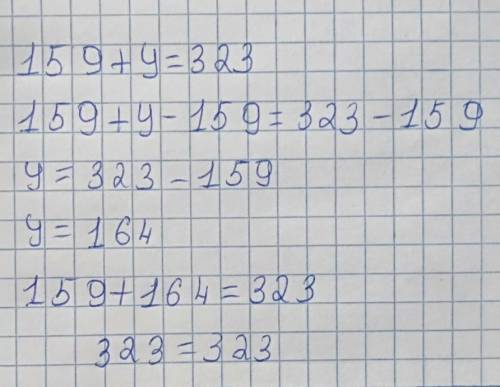 159+y=323
159+y-159=323-159
y=323-159
y=164
159+164=323
323=323